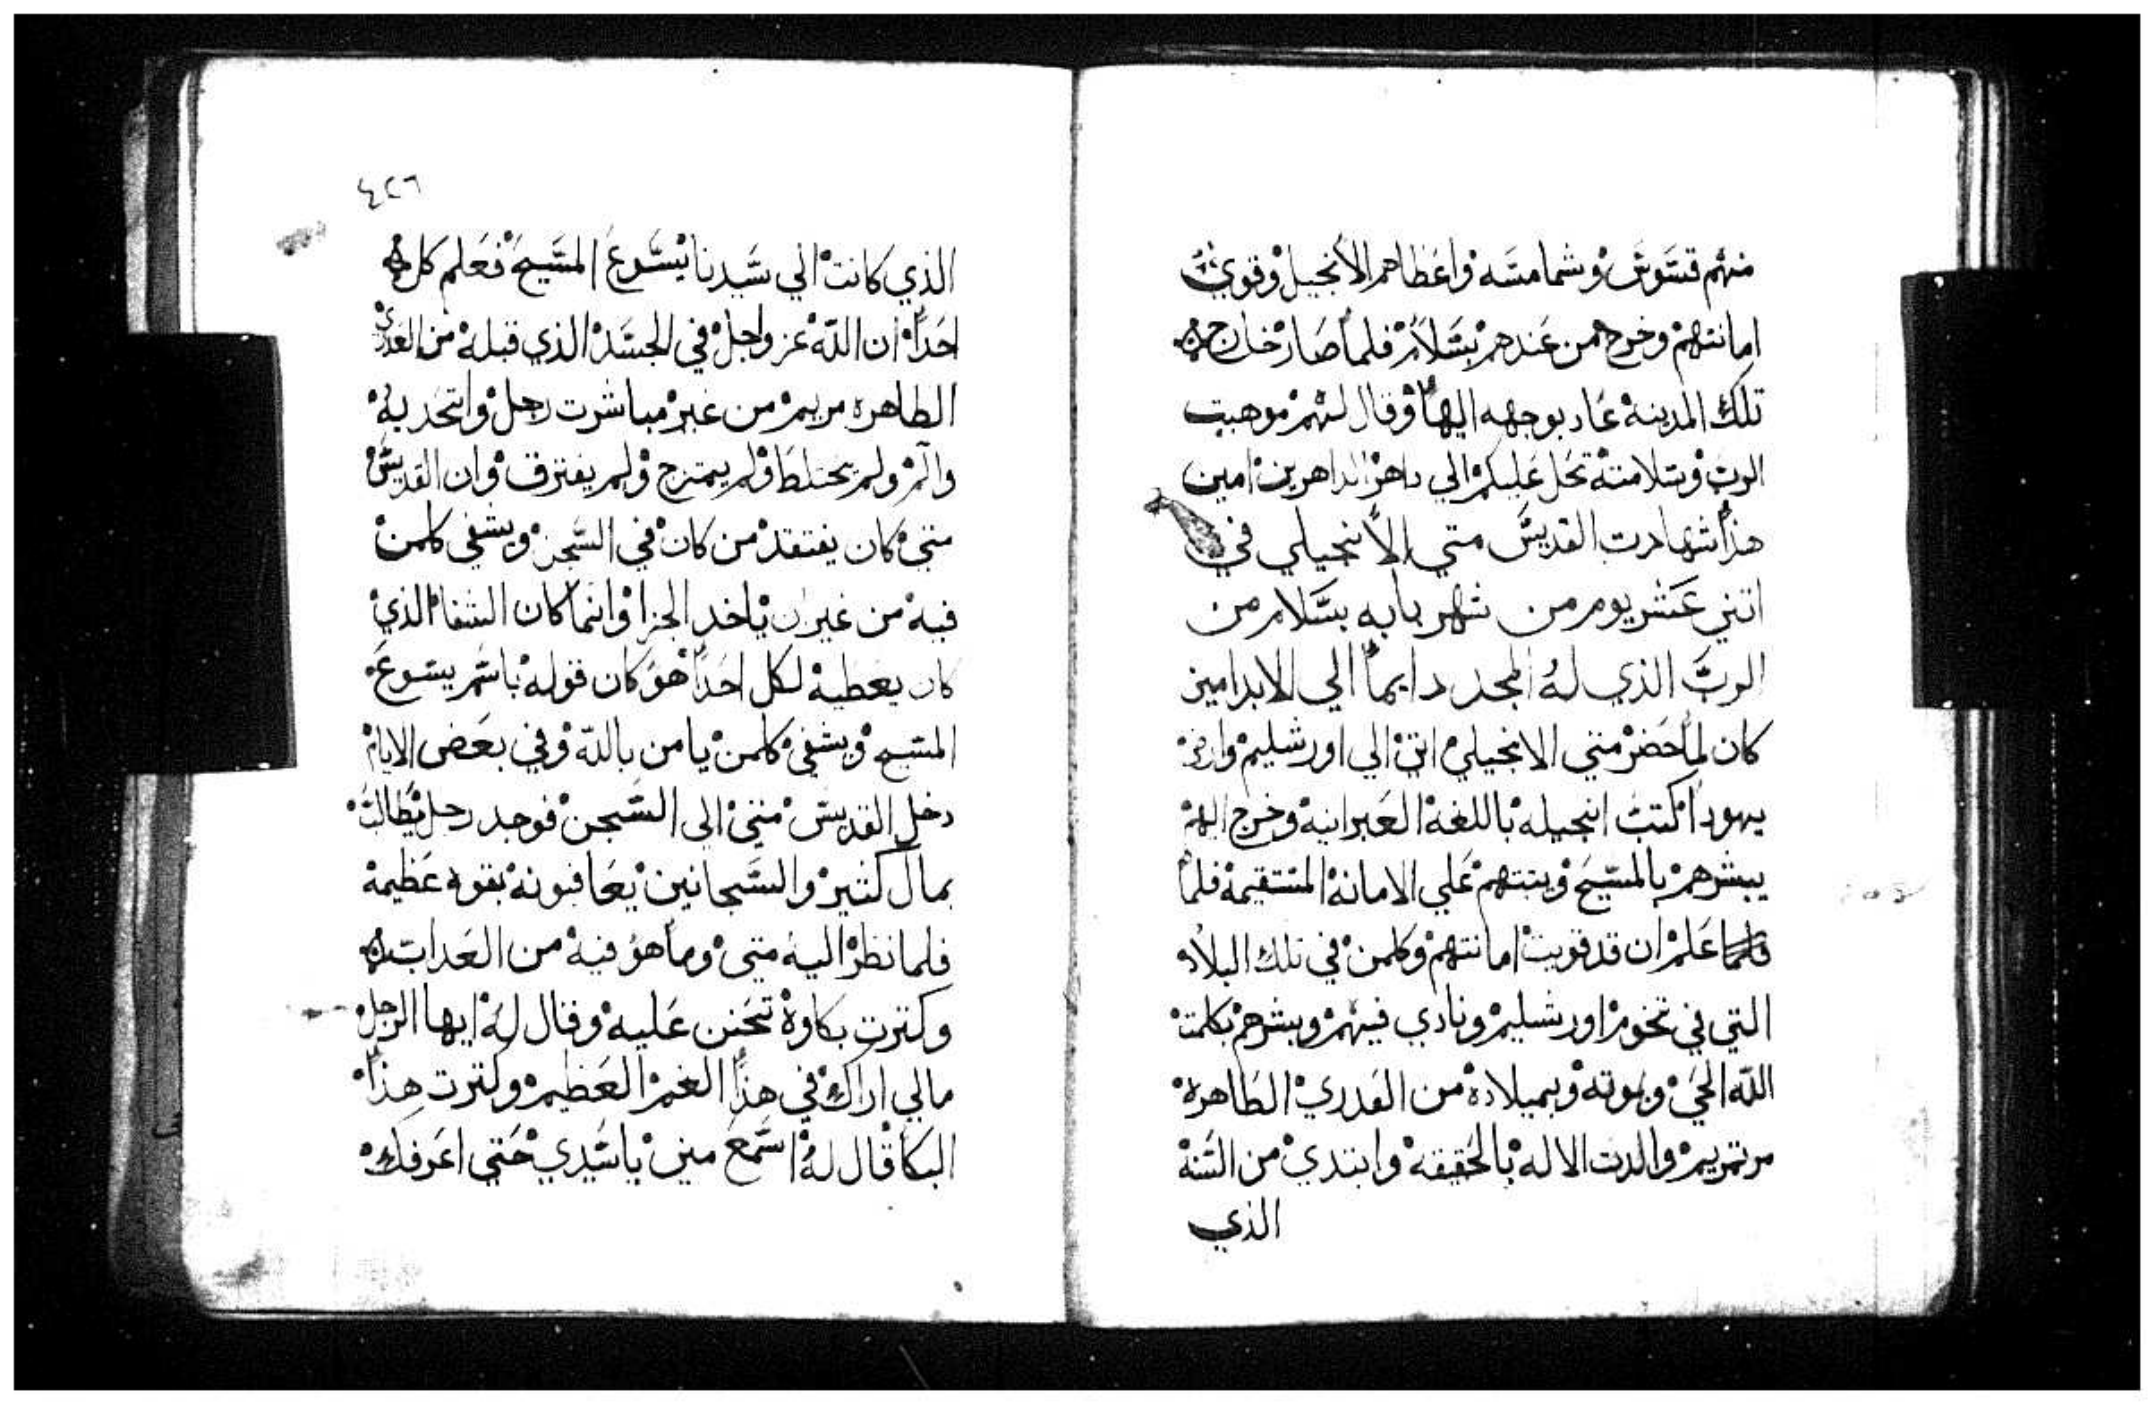 منهم قسوس وشمامسه واعطاهم الانجيل وقوي
امانتهم وخرج من عندهم بسلام فلما صار خارج
تلك المدينه عاد بوجهه اليها وقال لهم موهبت
الرب وسلامته تحل عليكم الي داهر الداهرين امين
هذا شهادت القديس متي الانجيلي في
اتني عشر يوم من شهر بابه بسلام من
الرب الذي له المجد دايما الي الابد امين
كان لما حضر متي الانجيلي اتي الي اورشليم وارض
يهودا كتب انجيله باللغه العبرانيه وخرج اليهم
يبشرهم بالمسيح ويتبتهم علي الامانه المستقيمه فلما
فلما علم ان قد قويت امانتهم وكلمن في تلك البلاد
التي في تخوم اورشليم ونادي فيهم وبشرهم بكلمت
الله الحي وبموته وبميلاده من العدري الطاهره
مرتمريم والدت الاله بالحقيقه وابتدي من السنه
الذي
٤٢٦
الذي كانت الي سيدنا يسوع المسيح فعلم كل
احدا ان الله عز وجل في الجسد الذي قبله من العدري
الطاهره مريم من غير مباشرت رجل واتحد به
والم ولم يختلط ولم يمتزج ولم يفترق وان القديس
متي كان يفتقد من كان في السجن ويشفي كلمن
فيه من غير ان ياخد الجزا وانما كان الشفا الذي
كان يعطيه لكل احدا هو كان قوله باسم يسوع
المسيح ويشفي كلمن يامن بالله وفي بعض الايام
دخل القديس متي الي السجن فوجد رجل يطالب
بمال كتير والسجانين يعاقبونه بقوه عظيمه
فلما نظر اليه متي وما هو فيه من العداب
وكترت بكاوه تحنن عليه وقال له ايها الرجل
مالي اراك في هذا الغم العظيم وكترت هذا
البكا قال له اسمع مني يا سيدي حتي اعرفك